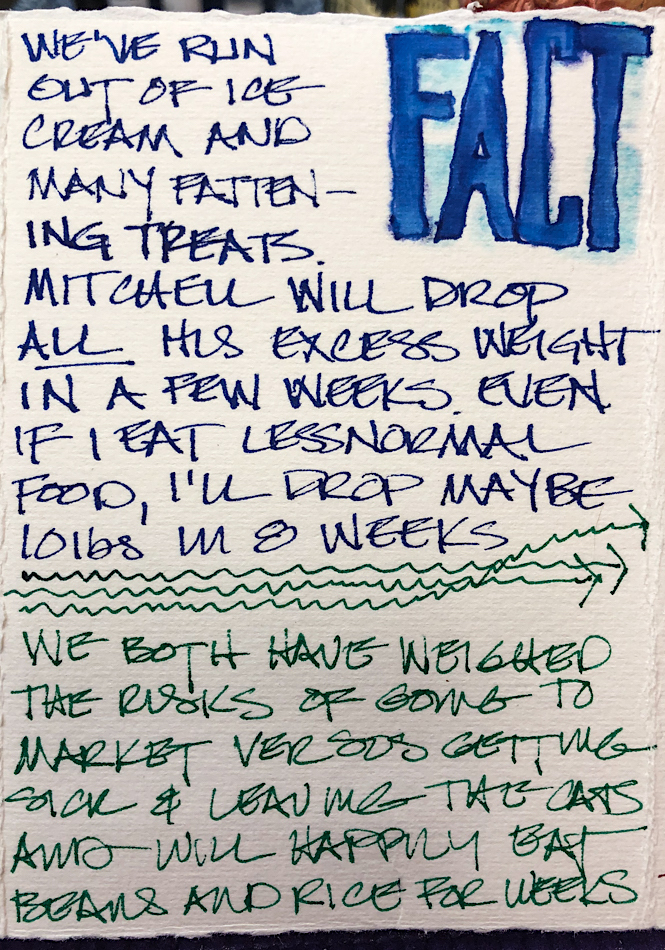 FACT
WE'VE RUN
OUT OF ICE
CREAM AND
MANY FATTEN-
ING TREATS.
MITCHELL WILL DROP
ALL HIS EXCESS WEIGHT
IN A FEW WEEKS. EVEN
IF I EAT LESS NORMAL
FOOD, I'LL DROP MAYBE
10lbs IN 8 WEEKS
WE BOTH HAVE WEIGHED
THE RISKS OF GOING TO
MARKET VERSUS GETTING
SICK & LEAVING THE CATS
AND WILL HAPPILY EAT
BEANS AND RICE FOR WEEKS